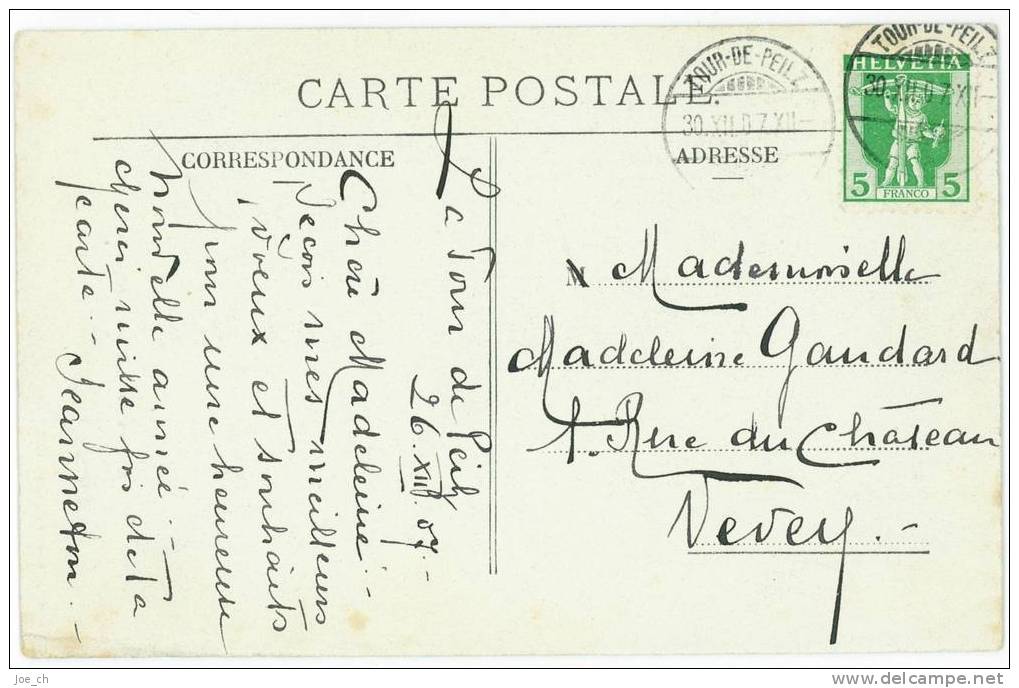 CARTE POSTALE.
CORRESPONDANCE
ADRESSE
TOUR-DE-PEILZ
30.XII.07.XII-
TOUR-DE-PEILZ
30.XII.07.XII-
HELVETIA
5 FRANCO 5
La Tour de Peilz
26.XII.07.-
Chère Madeleine.-
Reçois mes meilleurs
vœux et souhaits
pour une heureuse
nouvelle année.-
merci mille fois de ta
carte.- Jeanneton.-
M Mademoiselle
Madeleine Gaudard
1. Rue du Château
Vevey.-
Joe_ch
www.delcampe.net